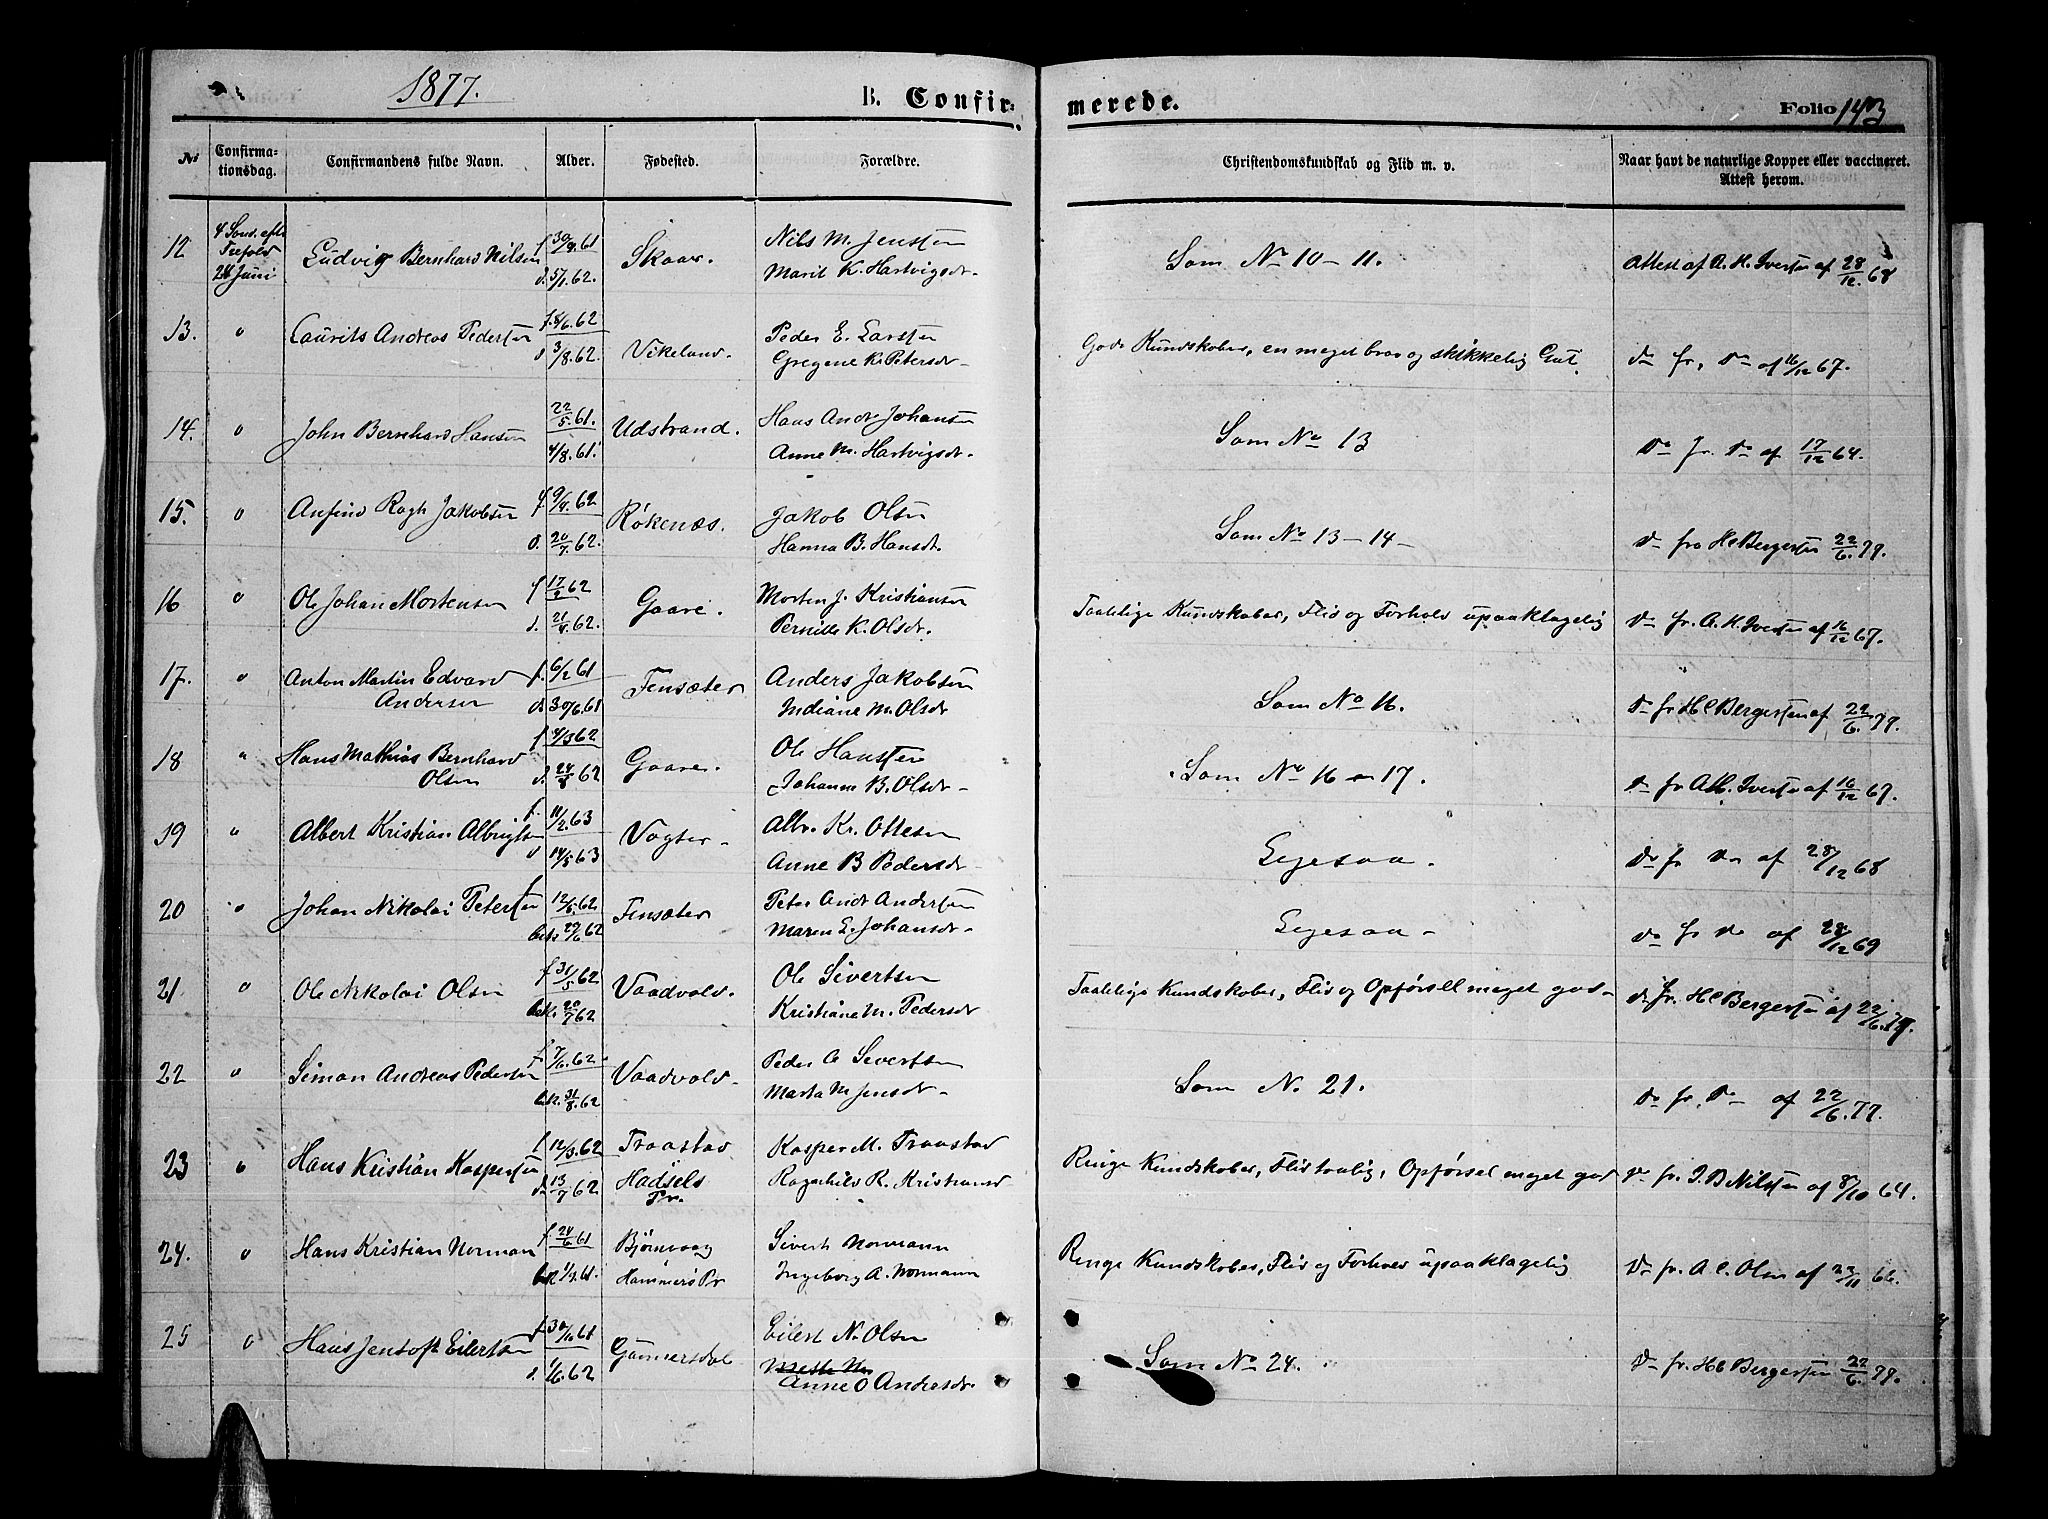 1877.
B. Confir-
merede.
Folio 143
No
Confirma-
tionsdag.
Confirmandens fulde Navn.
Alder.
Fødested.
Forældre.
Christendomskundskab og Flid m. v.
Naar havt de naturlige Kopper eller vaccineret.
Attest herom.
12
4 Sønd. eft.
Trefold.
24 Juni
Ludvig Bernhard Nilsen
f. 30/9.61
d. 5/1.62.
Skaar.
Nils M. Jensen
Marit K. Hartvigsdr.
Som No 10-11.
Attest af A. H. Iversen af 28/12.68
13.
"
Laurits Andreas Pedersen
f. 8/6.62
d 3/8.62.
Vikeland.
Peder E. Larsen
Gregene K. Petersdr.
Gode Kundskaber, en meget brav og skikkelig Gut.
do fr. do af 16/12 67.
14.
"
John Bernhard Hansen
22/5.61.
4/8.61.
Udstrand.
Hans Andr Johansen
Anne M. Hartvigsdr.
Som No 13
do fr. do af 17/12 64.
15.
"
Anfind Jakobsen
f. 9/4.62
d. 20/7.62.
Røkenæs.
Jakob Olsen
Hanna B. Hansdr.
Som No 13-14-
do fra HC Bergersen 22/6.77.
16
"
Ole Johan Mortensen
f. 62
d. 21/4.62.
Gaare.
Morten J. Kristiansen
Pernille K. Olsdr.
Taalelige Kundskaber, Flid og Forhold upaaklagelig
do fr. A. H. Iversen af 16/12 67.
17.
"
Anton Martin Edvard
Andersen
f. 6/2 61
d. 30/6.61
Fensæter
Anders Jakobsen
Indiane M. Olsdr
Som No 16.
do fr HC Bergersen af 22/6.77.
18
"
Hans Mathias Bernhard
Olsen
f 4/3 62
d. 62
Gaare.
Ole Hansen
Johanna B. Olsdr-
Som No 16 - 17.
do fr AH. Iversen af 16/12 67.
19
"
Albert Kristian Albrigtsen
f. 11/2.63
d 14/5 63
Vogter-
Albr. Kr. Ottesen
Anne B Pedersdr-
Ligesaa.
do fr do af 28/12 68
20
"
Johan Nikolai Petersen
f. 12/6.62.
bek. 29/6 62
Fensæter
Peter Andr Andersen
Maren E. Johansdr-
Ligesaa-
do fr do af 28/12 69
21
"
Ole Nikolai Olsen
f. 31/5 62
bek. 20/7 62
Vaadvold.
Ole Sivertsen
Kristiane M. Pedersdr
Taalelige Kundskaber, Flid og Opførsel meget god-
do fr. HC Bergersen af 22/6.77.
22
"
Simon Andreas Pedersen
f. 7/6.62.
bek. 31/8.62
Vaadvold-
Peder O Sivertsen
Marta M Jensdr-
Som N. 21.
do fr. do af 22/6.77.
23
"
Hans Kristian Kaspersen
f. 12/3.62
d. 13/7 62
Traastad
Hadsels
Pr.
Kasper M. Traastad
Ragnhild R. Kristiansdr
Ringe Kundskaber, Flid taalig, Opførsel meget god
do fr. I. B Nilsen af 8/10 64.
24.
"
Hans Kristian Norman
f. 24/6 61
bek 1/9.61.
Bjørnvaag
Hammerø Pr
Sivert Normann
Ingeborg A. Normann
Ringe Kundskaber, Flid og Forhold upaaklagelig
do fr. A C. Olsen af 22/11 66.
25
"
Hans Jentoft Eilertsen
f. 61
d. 1/6.62
Gunnersdal
Eilert N. Olsen
Anne O Andrésdr.
Som No 24.
do fr. HC Bergersen 22/6.77.